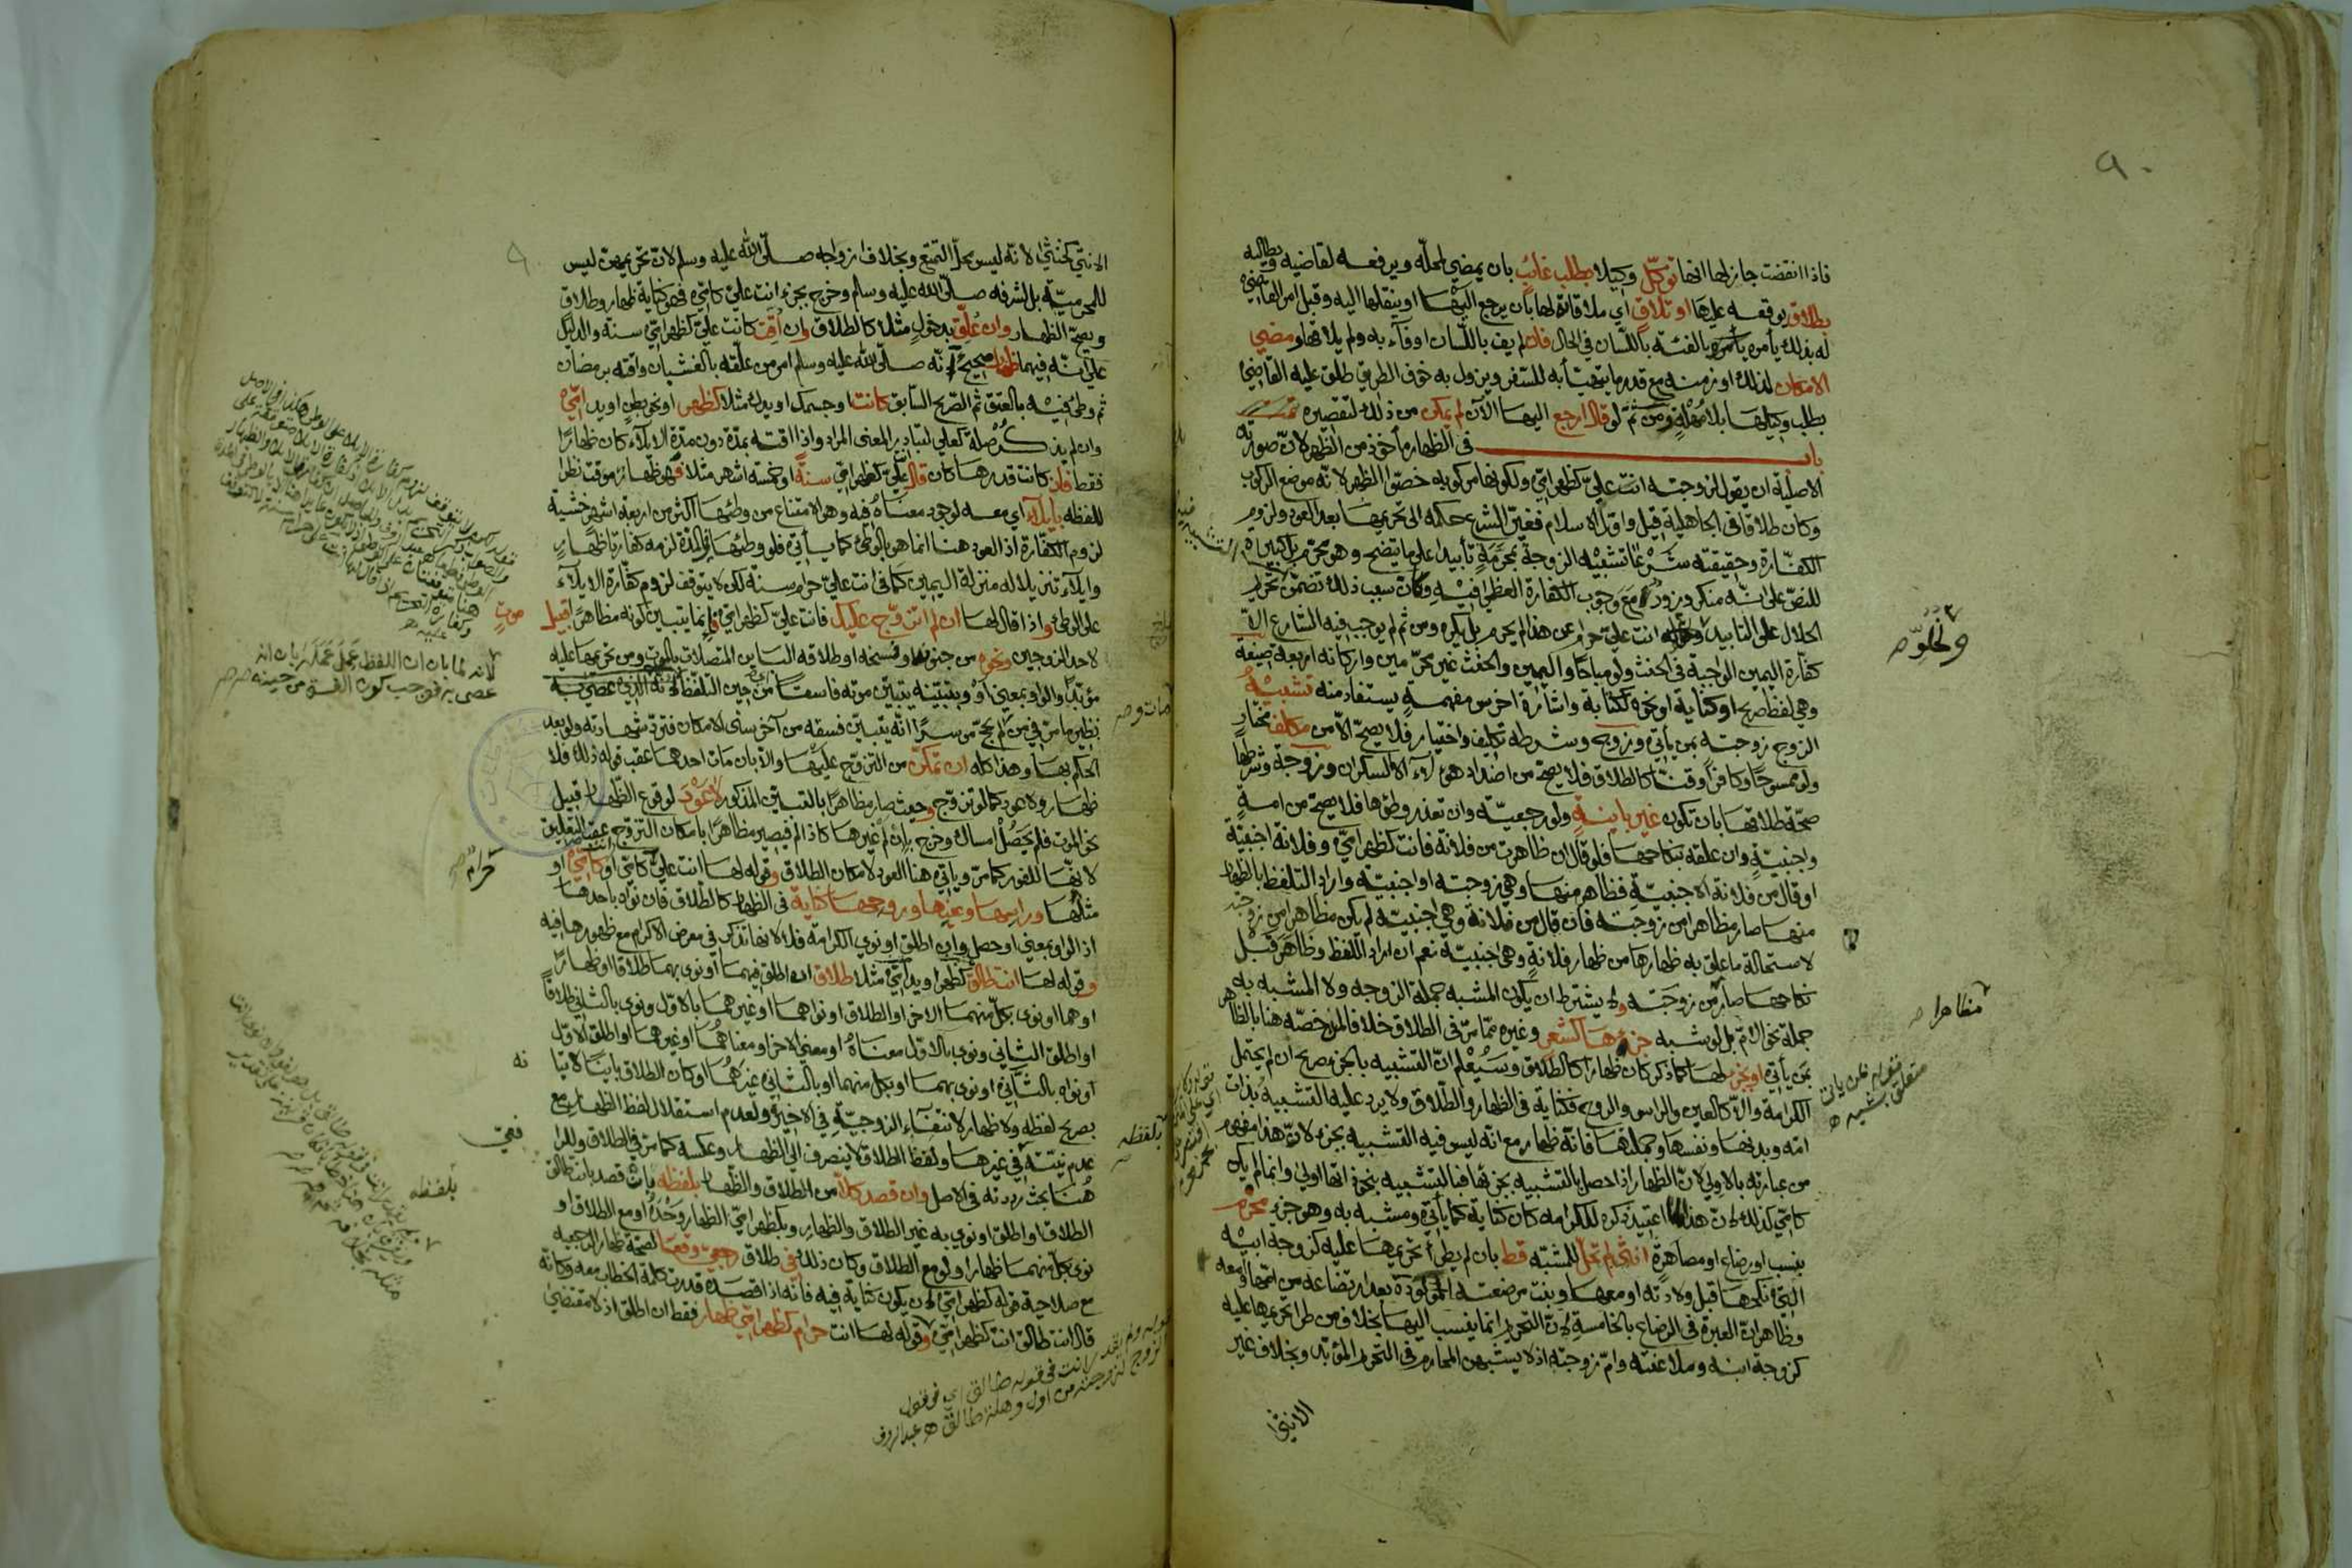 فاذا انقضت جاز لها انها توكل وكيلا بطلب غائب بان يمضي لمحله ويرفعه لقاضيه ويطالبه
بطلاق يوقعه عليها او تلاق اي ملاقاة لها بان يرجع اليها او ينقلها اليه وقبل امر القاضي
له بذلك يأمره بالفئة باللسان في الحال فان لم يف باللسان او فاء به ولم يلاقها ومضي
الامكان لذلك او زمنه مع قدر ما يتهيأ به للسفر ويزول به خوف الطريق طلق عليه القاضي
بطلب وكيلها بلا مهلة ومن ثم لو قال ارجع اليها الآن لم يمكن من ذلك لتقصيره
باب في الظهار مأخوذ من الظهر لان صورته
الاصلية ان يقول لزوجته انت علي كظهر امي ولكونها مركوبه خصوا الظهر لانه موضع الركوب
وكان طلاقا في الجاهلية قيل واول الاسلام فغير الشرع حكمه الى تحريمها بعد العود ولزوم
الكفارة وحقيقته شرعا تشبيه الزوجة بمحرمة تأبيدا على ما يتضح وهو محرم بل كبيرة
للنص على انه منكر وزور مع وجوب الكفارة العظمى فيه وكان سبب ذلك تضمن تحريم
الحلال على التابيد انت علي حرام عن هذا لم يحرم بل يكره ومن ثم لم يوجب فيه الشارع الا
كفارة اليمين الواجبة في الحنث ولو مباحا واليمين والحنث غير محرمين واركانه اربعة صيغة
وهي لفظ صريح او كناية او نحوه لكتابة واشارة اخرس مفهمة يستفاد منه تشبيه
الزوج زوجته بمن يأتي وزوج وشرطه تكليف واختيار فلا يصح الا من مكلف مختار
ولو ممسوحا وكافرا وقنا كالطلاق فلا يصح من اضداد هؤلاء الا السكران وزوجة وشرطها
صحة طلاقها بان تكون غير باينة ولو رجعية وان تعذر وطؤها فلا يصح من امة
واجنبية وان علقه بنكاحها فلو قال ان ظاهرت من فلانة فانت كظهر امي وفلانة اجنبية
او قال من فلانة الاجنبية فظاهر منها وهي زوجته او اجنبية واراد التلفظ بالظهار
منها صار مظاهرا من زوجته فان قال من فلانة وهي اجنبية لم يكن مظاهرا من زوجته
لاستحالة ما علق به ظهارها من ظهار فلانة وهي اجنبية نعم ان اراد اللفظ وظاهر قبل
نكاحها صار من زوجته ولا يشترط ان يكون المشبه جملة الزوجة ولا المشبه به
جملة نحو الام بل لو شبه جزءها كشعر وغيره مما مر في الطلاق خلافا لمن خصه هنا بالظاهر
بمن يأتي او بجزء لها كما ذكر كان ظهارا كالطلاق وسيعلم ان التشبيه بالجزء صريح ان لم يحتمل
الكرامة والا كالعين والراس والروح فكناية في الظهار والطلاق ولا يرد عليه التشبيه بذات
امه وبدنها ونفسها وجملتها فانه ظهار مع انه ليس فيه التشبيه بجزء لان هذا مفهوم
من عبارته بالاولى لان الظهار اذا حصل بالتشبيه بجزئها فبالتشبيه بنحو ذاتها اولى وانما لم يكن
كامي كذلك لان هذا اعتيد ذكره للكرامه كان كناية كما يأتي ومشبه به وهو جزء محرم
بنسب او رضاع او مصاهرة انثى لم تحل للمشبه قط بان لم يطرأ تحريمها عليه كزوجة ابيه
التي نكحها قبل ولادته او معها وبنت مرضعته المولودة بعد ارتضاعه من امها او معه
وظاهر ان العبرة في الرضاع بالخامسة لان التحريم انما ينسب اليها بخلاف من طرا تحريمها عليه
كزوجة ابنه وملاعنته وام زوجته اذ لا يشبهن المحارم في التحريم المؤبد وبخلاف غير
الانثى
مظاهرا صح
قوله بمن ياتي
متعلق بتشبيه
الانثى كخنثى لانه ليس محل التمتع وبخلاف ازواجه صلى الله عليه وسلم لان تحريمهن ليس
للمحرمية بل لشرفه صلى الله عليه وسلم وخرج بجزء انت علي كامي فهو كناية ظهار وطلاق
ويصح الظهار وان علق بدخول مثلا كالطلاق وان أقت كانت علي كظهر امي سنة والدليل
على انه فيهما ظهار صحيح انه صلى الله عليه وسلم امر من علقه بالغشيان واقته برمضان
ثم وطئ فيه بالعتق ثم الصريح السابق كانت او جسمك او يدك مثلا كظهر او نحو بطن او يد امي
وان لم يذكر صلة كعلي لتبادر المعنى المراد واذا اقته بمدة دون مدة الايلاء كان ظهارا
فقط فان كانت قدرها كان قال علي كظهر امي سنة او خمسة اشهر مثلا فهو ظهار موقت نظرا
للفظه بإيلاء اي معه لوجود معناه فيه وهو الامتناع من وطئها اكثر من اربعة اشهر خشية
لزوم الكفارة اذ العود هنا انما هو بالوطئ كما يأتي فلو وطئها في المدة لزمه كفارة ظهار
وايلاء تنزيلا له منزلة اليمين كما في انت علي حرام سنة لكن لا يتوقف لزوم كفارة الايلاء
على الوطئ واذا قال لها ان لم اتزوج عليك فانت علي كظهر امي فانما يتبين كونه مظاهرا قبيل
موت
لاحد الزوجين ونحوه من جنونه وفسخه او طلاقه الباين المتصلات بالموت ومن تحريمها عليه
مؤبدا والواو بمعنى او وبتبينه يتبين موته فاسقا من حين التلفظ لانه الذي عصى به
نظير ما مر في من لم يحج من سر انه يتبين فسقه من آخر سني الامكان فترد شهادته ولو بعد
الحكم بها وهذا كله ان تمكن من التزوج عليها والا بان مات احدهما عقب قوله ذلك فلا
ظهار ولا عود كما لو تزوج وحيث صار مظاهرا بالتبين المذكور لا عود لوقوع الظهار قبيل
نحو الموت فلم يحصل امساك وخرج بان لم غيرها كاذا لم فيصير مظاهرا بامكان التزوج عقب التعليق
لانها للفور كما مر ويأتي هنا العود لامكان الطلاق وقوله لها انت علي كامي او كامي او
مثلها وراسها وعينها وروحها كناية في الظهار كالطلاق فان نواه باحدها
اذ الواو بمعنى او حصل وان اطلق او نوى الكرامة فلا لانها تذكر في معرض الاكرام مع ظهورها فيه
وقوله لها انت طالق كظهر او يد امي مثلا طلاق ان اطلق فيهما او نوى بهما طلاقا او ظهارا
او هما او نوى بكل منهما الاخر او الطلاق او نواهما او غيرهما بالاول ونوى بالثاني طلاقا
او اطلق الثاني ونوى بالاول معناه او معنى الاخر او معناهما او غيرها او اطلق الاول
او نواه بالثاني او نوى بهما او بكل منهما او بالثاني غيرهما او كان الطلاق باينا لاتيا
بصريح لفظه ولا ظهار لانتفاء الزوجية في الاخيرة ولعدم استقلال لفظ الظهار مع
عدم نيته في غيرها ولفظ الطلاق لا ينصرف الى الظهار وعكسه كما مر في الطلاق وللرافعي
هنا بحث رددته في الاصل وان قصد كلا من الطلاق والظهار بلفظه بان قصد بانت طالق
الطلاق او اطلق او نوى به غير الطلاق والظهار وبكظهر امي الظهار وحده او مع الطلاق او
نوى بكل منهما ظهارا ولو مع الطلاق وكان ذلك في طلاق رجعي وقعا لصحة ظهار الرجعية
مع صلاحية قوله كظهر امي لان يكون كناية فيه فانه اذا قصده قدرت كلمة الخطاب معه وكانه
قال انت طالق انت كظهر امي وقوله لها انت حرام كظهر امي ظهار فقط ان اطلق اذ لا مقتضى
لانه لما بان ان اللفظ عمل عمله بان انه
عصى به فوجب كون الفسق من حينه
حرام صح
بلفظه